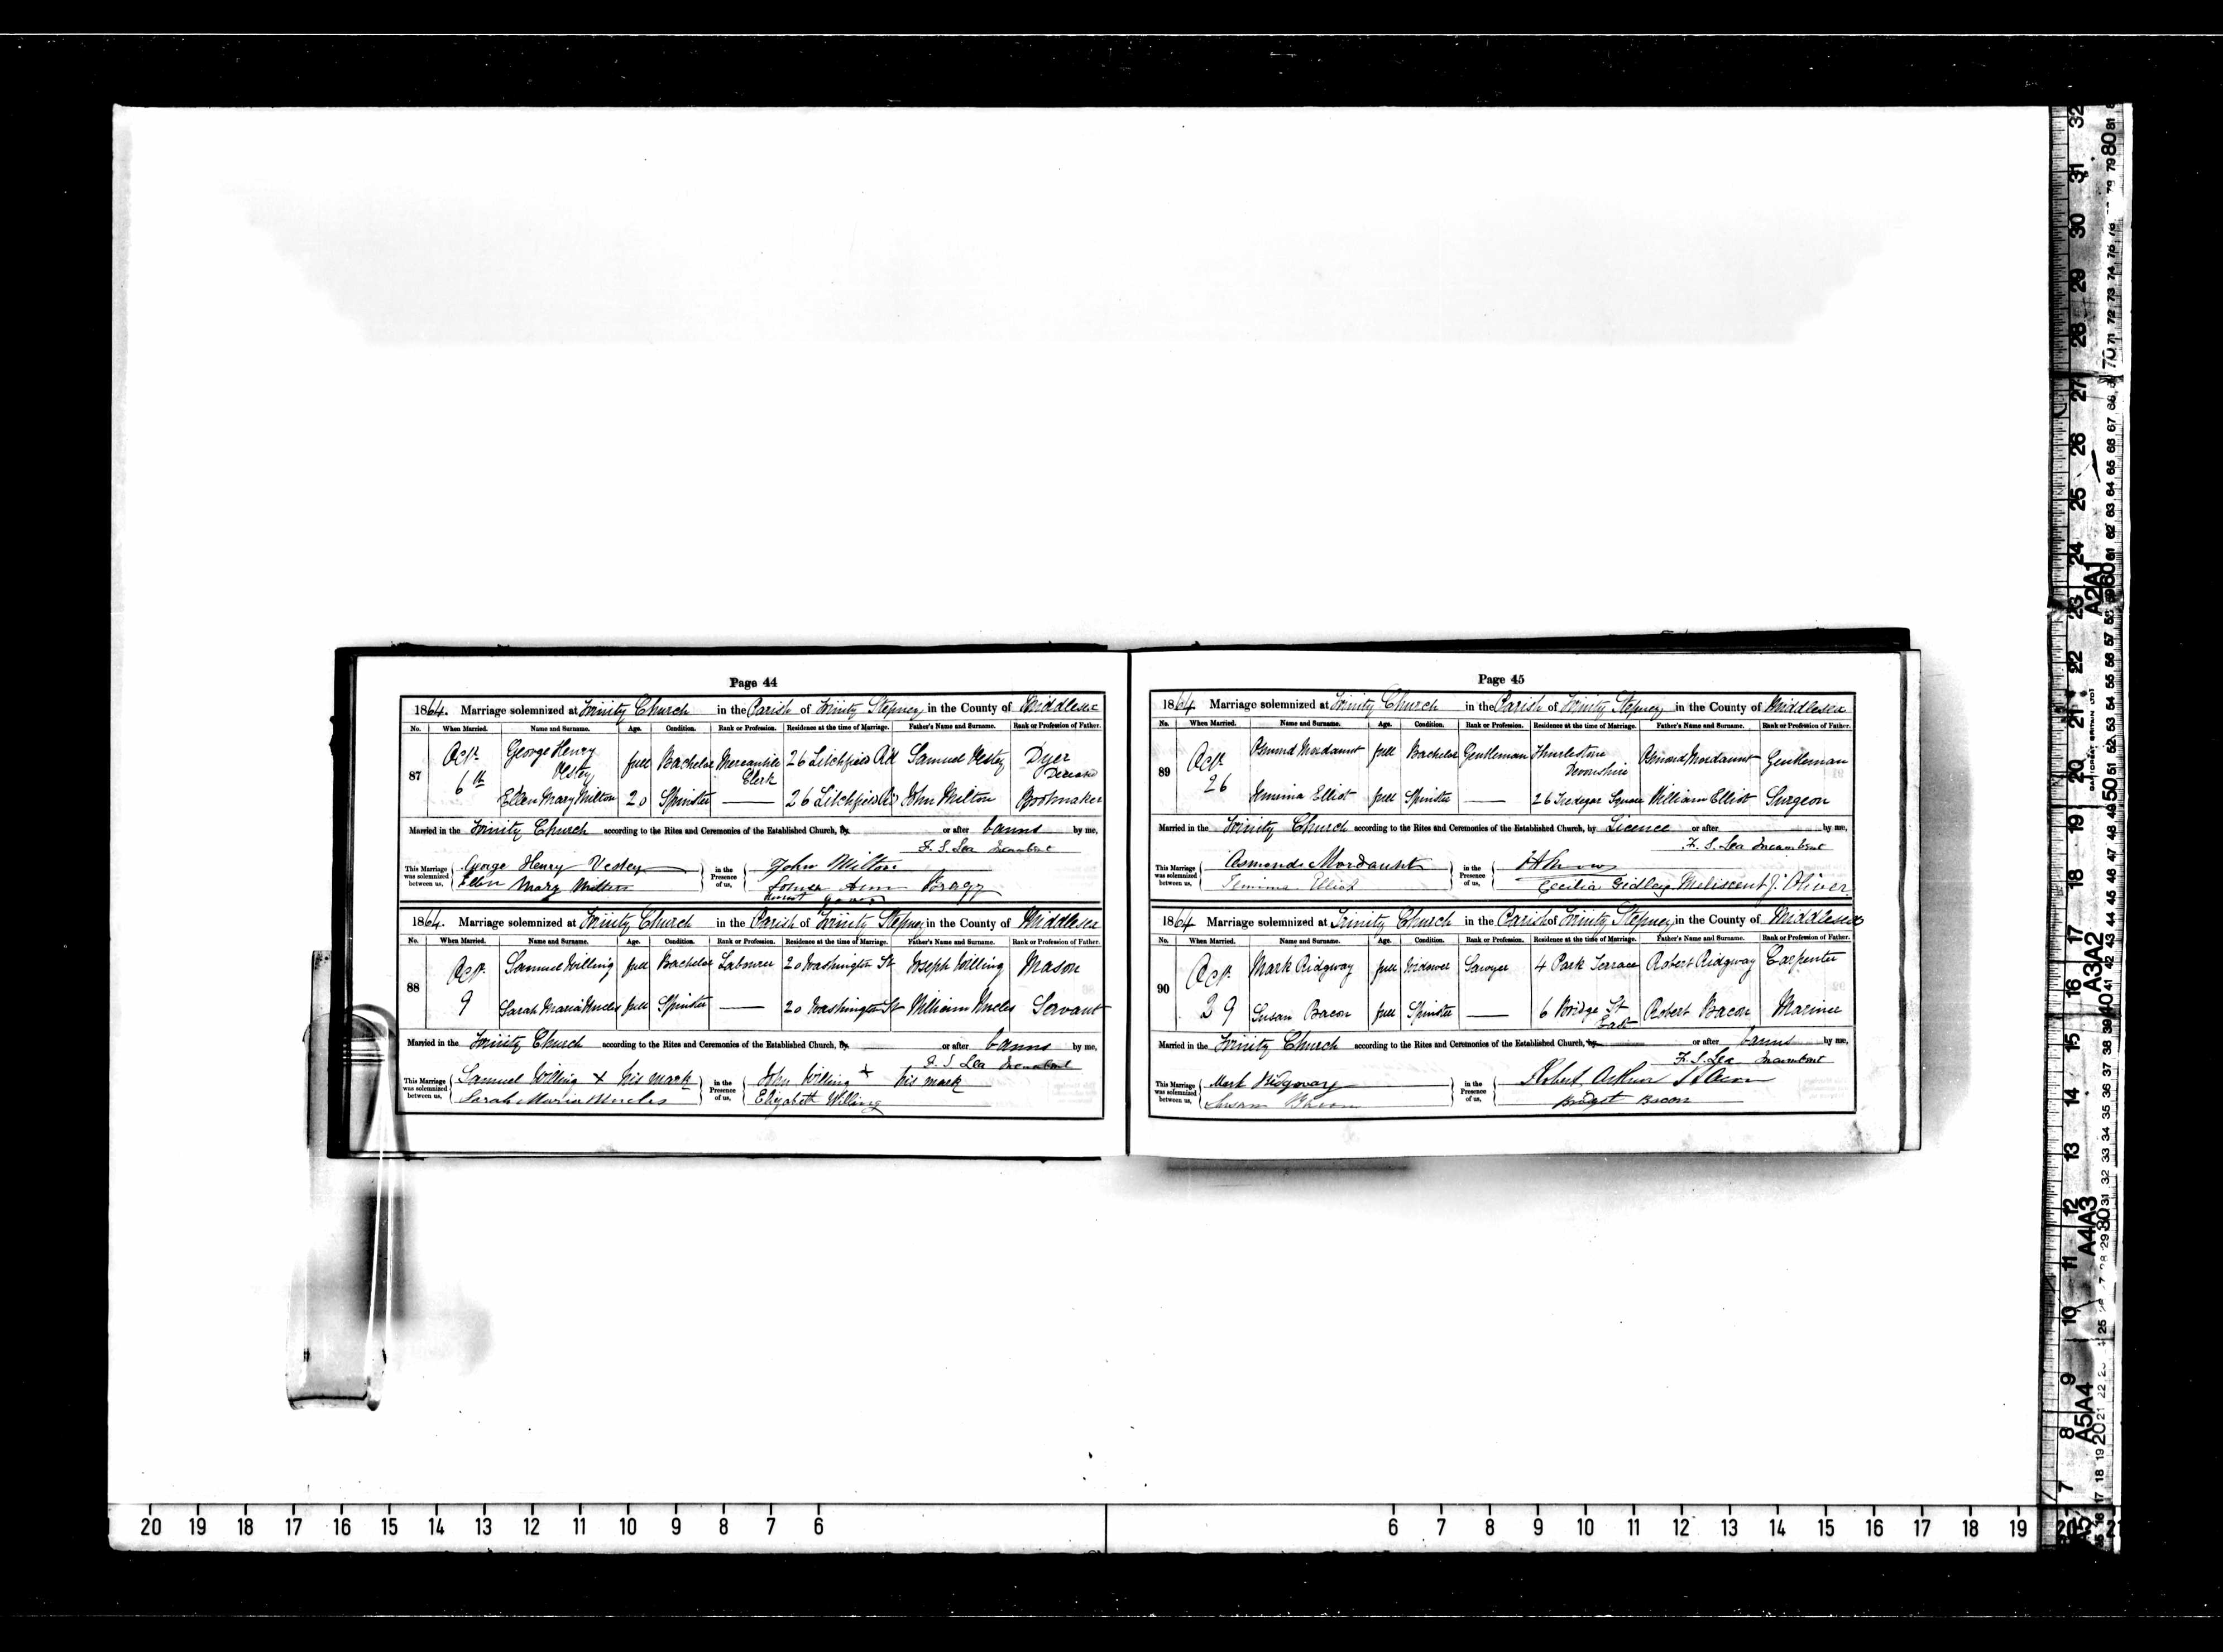 Page 44
1864. Marriage solemnized at Trinity Church in the Parish of Trinity Stepney in the County of Middlesex
No. When Married. Name and Surname. Age. Condition. Rank or Profession. Residence at the time of Marriage. Father's Name and Surname. Rank or Profession of Father.
87 Octr. 6th George Henry Vestey full Bachelor Mercantile Clerk 26 Litchfield Rd Samuel Vestey Dyer Deceased
Ellen Mary Milton 20 Spinster 26 Litchfield Rd John Milton Bootmaker
Married in the Trinity Church according to the Rites and Ceremonies of the Established Church, by or after banns by me,
F. S. Lea Incumbent
This Marriage was solemnized between us, George Henry Vestey Ellen Mary Milton in the Presence of us, John Milton Ann Bragg
1864. Marriage solemnized at Trinity Church in the Parish of Trinity Stepney in the County of Middlesex
No. When Married. Name and Surname. Age. Condition. Rank or Profession. Residence at the time of Marriage. Father's Name and Surname. Rank or Profession of Father.
88 Octr. 9 Samuel Willing full Bachelor Labourer 20 Washington St Joseph Willing Mason
Sarah Maria Uncles full Spinster 20 Washington St William Uncles Servant
Married in the Trinity Church according to the Rites and Ceremonies of the Established Church, by or after banns by me,
F. S. Lea Incumbent
This Marriage was solemnized between us, Samuel Willing X his mark Sarah Maria Uncles in the Presence of us, John Willing X his mark Elizabeth Willing
Page 45
1864 Marriage solemnized at Trinity Church in the Parish of Trinity Stepney in the County of Middlesex
No. When Married. Name and Surname. Age. Condition. Rank or Profession. Residence at the time of Marriage. Father's Name and Surname. Rank or Profession of Father.
89 Octr. 26 Osmond Mordaunt full Bachelor Gentleman Thurleston Devonshire Osmond Mordaunt Gentleman
Jemima Elliot full Spinster 26 Tredegar Square William Elliot Surgeon
Married in the Trinity Church according to the Rites and Ceremonies of the Established Church, by Licence or after by me,
F. S. Lea Incumbent
This Marriage was solemnized between us, Osmond Mordaunt Jemima Elliot in the Presence of us, Cecilia Gidley Meliscent J. Oliver
1864 Marriage solemnized at Trinity Church in the Parish of Trinity Stepney in the County of Middlesex
No. When Married. Name and Surname. Age. Condition. Rank or Profession. Residence at the time of Marriage. Father's Name and Surname. Rank or Profession of Father.
90 Octr. 29 Mark Ridgway full Widower Sawyer 4 Park Terrace Robert Ridgway Carpenter
Susan Bacon full Spinster 6 Bridge St East Robert Bacon Mariner
Married in the Trinity Church according to the Rites and Ceremonies of the Established Church, by or after banns by me,
F. S. Lea Incumbent
This Marriage was solemnized between us, Mark Ridgway Susan Bacon in the Presence of us, Robert Arthur Bridget Bacon
20 19 18 17 16 15 14 13 12 11 10 9 8 7 6 6 7 8 9 10 11 12 13 14 15 16 17 18 19